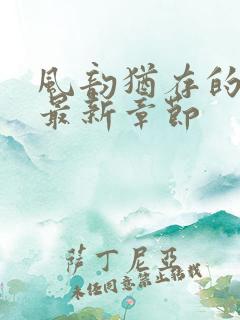 风韵犹存的
最新章节
萨丁尼亚
未经同意禁止转载